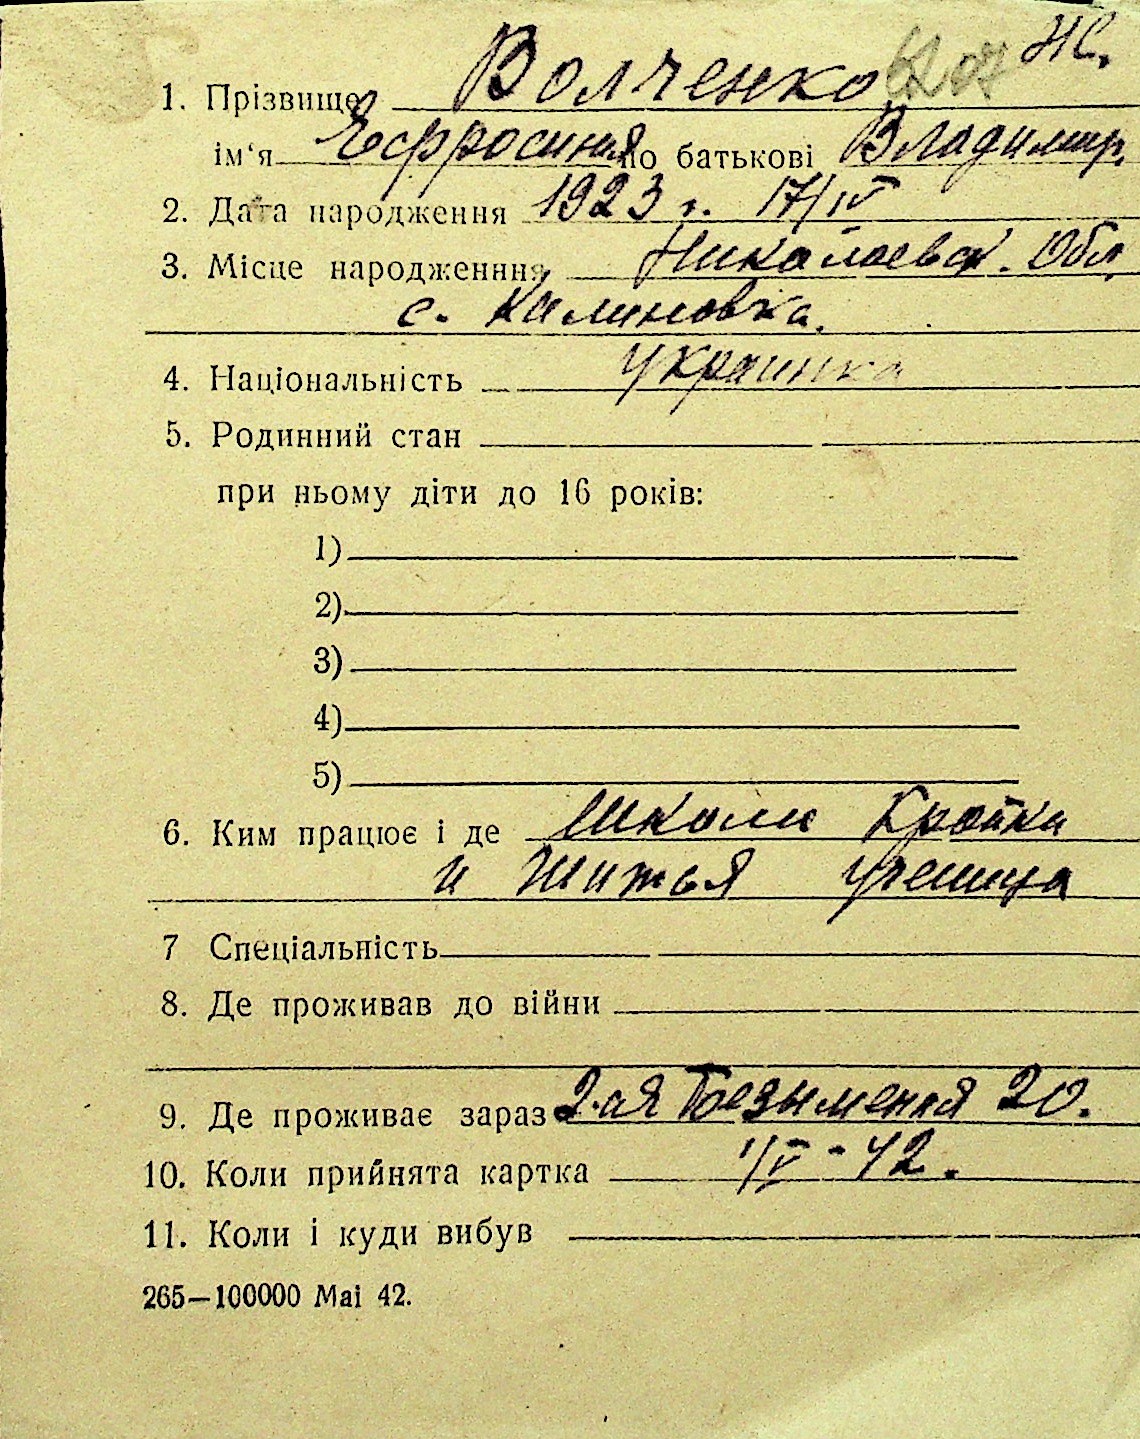 Ж.
1. Прізвище Волченко
ім'я Ефросиния по батькові Владимир.
2. Дата народження 1923 г. 17/IV
3. Місце народженння Николаевск. Обл.
с. Калиновка.
4. Національність украинка
5. Родинний стан
при ньому діти до 16 років:
1)
2)
3)
4)
5)
6. Ким працює і де Школи Кройки
и Шитья ученица
7 Спеціальність
8. Де проживав до війни
9. Де проживає зараз 2-ая Безыменая 20.
10. Коли прийнята картка 1/V-42.
11. Коли і куди вибув
265—100000 Mai 42.